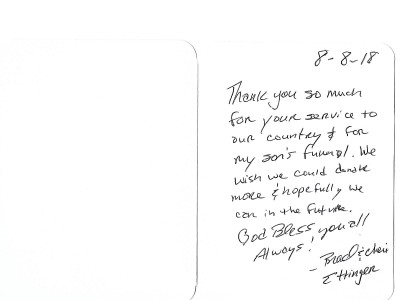 8-8-18
Thank you so much
for your service to
our country & for
my son's funeral. We
wish we could donate
more & hopefully we
can in the future.
God Bless you all
Always!
- Brad & Cheri
Ettinger